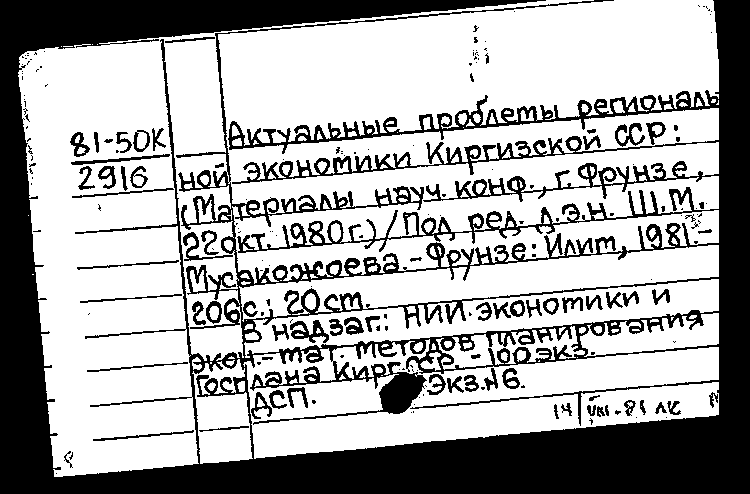 81-50К
2916
Актуальные проблемы региональ
ной экономики Киргизской ССР:
(Материалы науч. конф., г. Фрунзе,
22 окт. 1980 г.)/Под ред. д.э.н. Ш.М.
Мусакожоева.-Фрунзе: Илим, 1981.-
206 с.; 20 см.
В надзаг.: НИИ экономики и
экон.-мат. методов планирования
Госплана Кирг.ССР. - 100 экз.
ДСП. Экз.№6.
14 81 ЛК